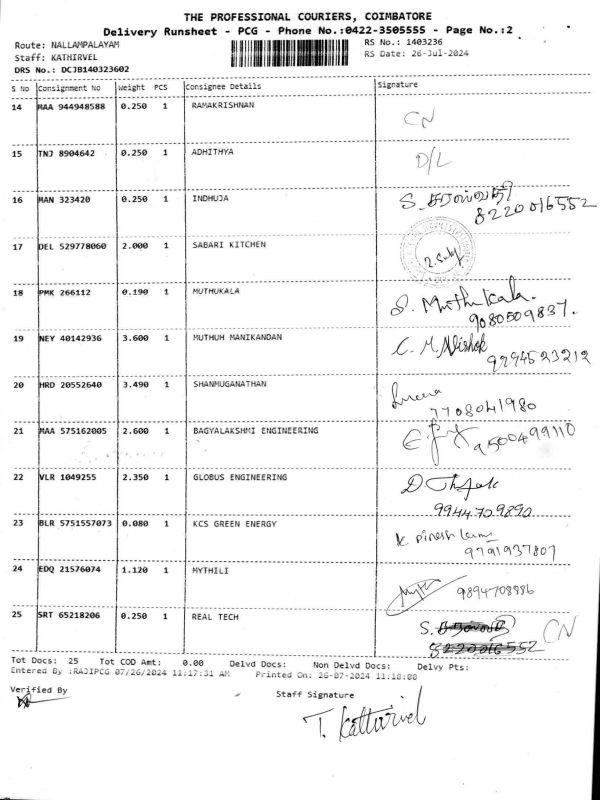 THE PROFESSIONAL COURIERS, COIMBATORE
Delivery Runsheet - PCG - Phone No.:0422-3505555 - Page No.:2
Route: NALLAMPALAYAM RS No.: 1403236
Staff: KATHIRVEL RS Date: 26-Jul-2024
DRS No.: DCJB140323602
S No Consignment No Weight PCS Consignee Details Signature
14 MAA 944948588 0.250 1 RAMAKRISHNAN CN
15 TNJ 8904642 0.250 1 ADHITHYA D/L
16 MAN 323420 0.250 1 INDHUJA S. சரஸ்வதி
8220016552
17 DEL 529778060 2.000 1 SABARI KITCHEN
18 PMK 266112 0.190 1 MUTHUKALA S. Muthukala.
9080509837.
19 NEY 40142936 3.600 1 MUTHUH MANIKANDAN C. M. Nishok
9294523212
20 HRD 20552640 3.490 1 SHANMUGANATHAN
7708041980
21 MAA 575162005 2.600 1 BAGYALAKSHMI ENGINEERING 9500499110
22 VLR 1049255 2.350 1 GLOBUS ENGINEERING
9944709890
23 BLR 5751557073 0.080 1 KCS GREEN ENERGY
9791937807
24 EDQ 21576074 1.120 1 MYTHILI 9894708886
25 SRT 65218206 0.250 1 REAL TECH S. CN
8220016552
Tot Docs: 25 Tot COD Amt: 0.00 Delvd Docs: Non Delvd Docs: Delvy Pts:
Entered By :RAJIPCG 07/26/2024 11:17:31 AM Printed On: 26-07-2024 11:18:00
Verified By Staff Signature
T. Kathirvel